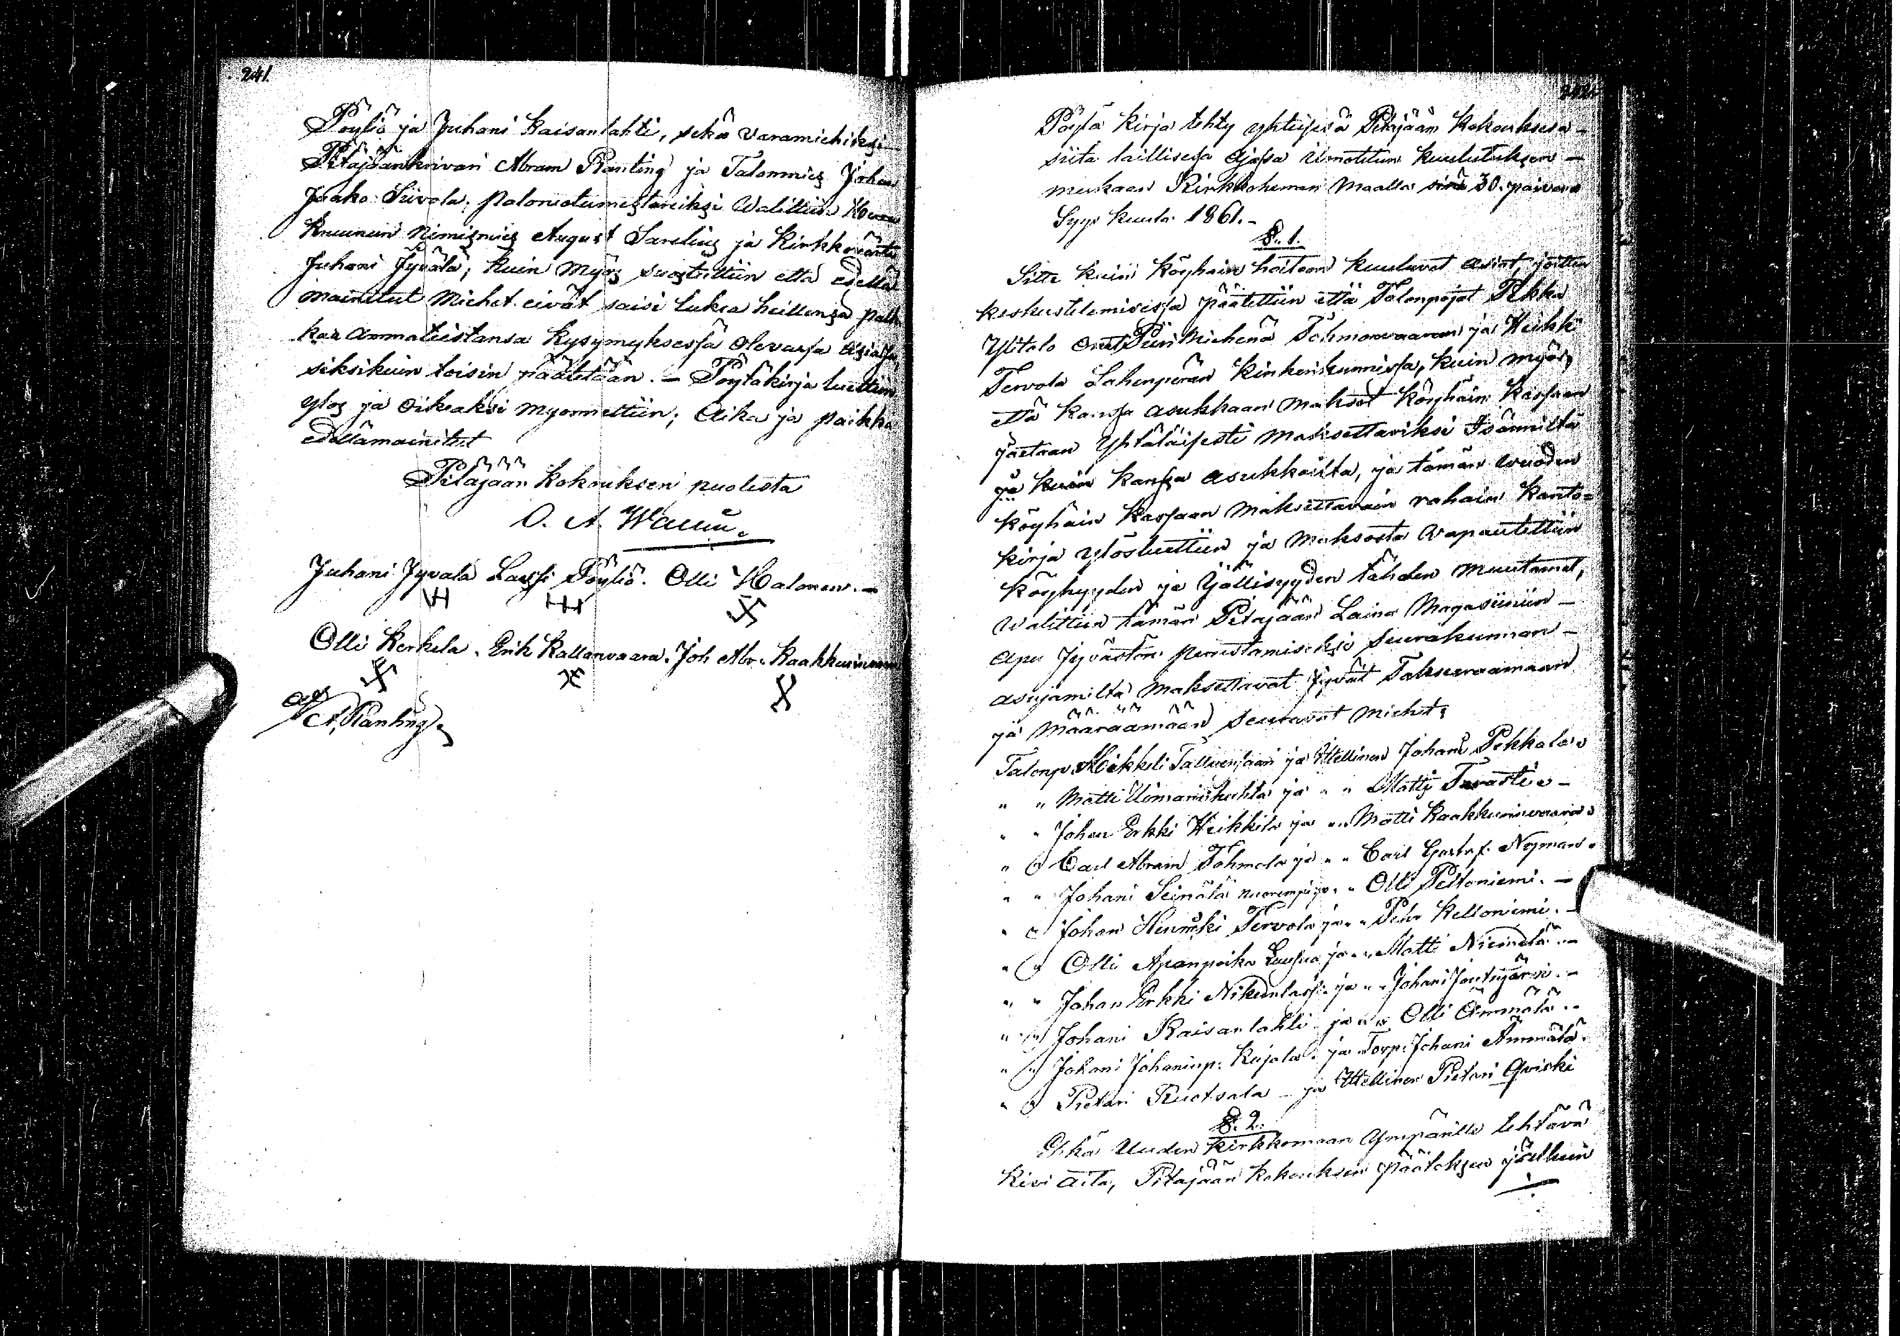 241.
Pöyliö ja Juhani Kaisanlahti, sekä varamiehiksi
Pitäjäänkrivari Abram Planting ja Talonmies Johan
Jaako Suvola. palonoteumestariksi Walittiin Herra
Kruunun Nimismies August Sarelius ja Kirkkoväärti
Juhani Jyvälä; kuin Myös suostuttiin että edellä
mainitut Miehet eivät saisi lukea heillensä palk
kaa ammateistansa kysymyksessä olevassa asiassa,
siksikuin toisin päätetään. – Pöytäkirja luettiin
ylös ja oikiaksi myönnettiin; Aika ja paikka
edellämainitut
Pitäjään kokouksen puolesta
O. A. Waenii.
Juhani Jyvälä Lassi Pöyliö. Olli Halonen. –
Olli Kerkelä. Erik Kallanvaara. Joh Abr. Kaakkurivaara
A. Planting
Pöytä kirja tehty yhteisesä Pitäjään kokouksesa –
siitä laillisesa ajasa ilmoitetun kuulutuksen –
mukaan Kirkkoherran maalla sinä 30. päivänä
Syys kuuta 1861. –
§. 1.
Sitte kuin köyhäin hoitoon kuuluvat asiat, joitten
keskustelemisessa päätettiin että Talonpojat Pekka
Ylitalo on Piirimiehenä Tohmonvaaran ja Heikki
Tervola Lahenperän kinkerikunnissa, kuin myös,
että kansa asukkaan maksot köyhäin kassaan
jaetaan yhtäläisesti maksettaviksi Isänniltä
ja kuin kansa asukkailta, ja tämän vuoden
köyhäin kassaan maksettavain rahain kanto=
kirja ylösluettiin ja maksosta vapautettiin
köyhyyden ja tähden muutamat,
Walittiin tämän Pitäjään Laina Magasiiniin –
apu Jyvästön perustamiseksi seurakunnan –
asujamilta maksettavat jyvät Takseeraamaan
ja määräämään seuraavat miehet;
Talonp. Mikkeli Tallvensaari ja Ittellinen Johani Pekkala.
" " Matti Uimarinhuhta ja " " Matts Tavasti. –
" " Johan Erkki Heikkilä ja " " Matti Kaakkurivaara.
" " Carl Abram Tohmola ja " " Carl Gustaf Nyman.
" " Johani Seinälä nuorempi ja " " Olli Peltoniemi. –
" " Johan Henriki Tervola ja " " Petr Keltoniemi. –
" " Olli Apanpoika Luusua ja " " Matti Niemelä. –
" " Johan Erkki Nikunlassi. ja " " Johani Joutsijärvi. –
" " Johani Kaisanlahti ja " " Olli Ämmälä. –
" " Johani Johaninp. Kujala. ja Torp. Johani Ämmälä.
" " Pietari Ruotsala – ja Ittellinen Pietari Qvirki
§. 2.
Että Uuden kirkkomaan ympärille tehtävä
kivi aita, Pitäjään kokouksen päätöksen jälkeen